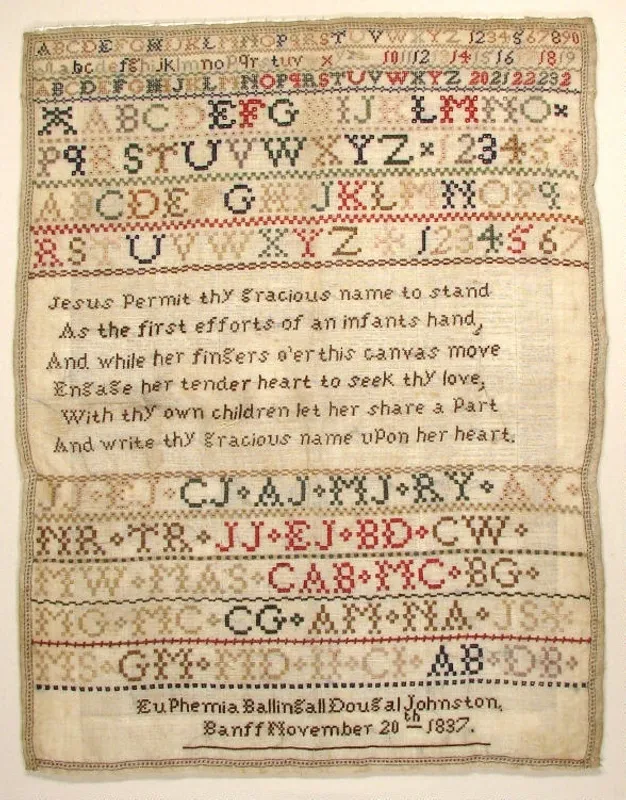 ABCDEFGHIJKLMNOPQRSTUVWXYZ 1234567890
abcdefghijklmnopqr stuv x 10 11 12 14 15 16 18 19
ABCDEFGHIJKLMNOPQRSTUVWXYZ 20 21 22 23 2
A ABCDEFGHIJKLMNO
PQRSTUVWXYZ 123456
ABCDEFGHIJKLMNOPQ
RSTUVWXYZ 1234567
Jesus Permit thy gracious name to stand
As the first efforts of an infants hand,
And while her fingers o'er this canvas move
Engage her tender heart to seek thy love,
With thy own children let her share a Part
And write thy gracious name upon her heart.
JJ EJ CJ AJ MJ RY AY
NR TR JJ EJ BD CW
MW MAS CAB MC BG
MG MC CG AM NA JS
MS GM MD AB DB
Euphemia Ballingall Dougal Johnston,
Banff November 20th 1837.